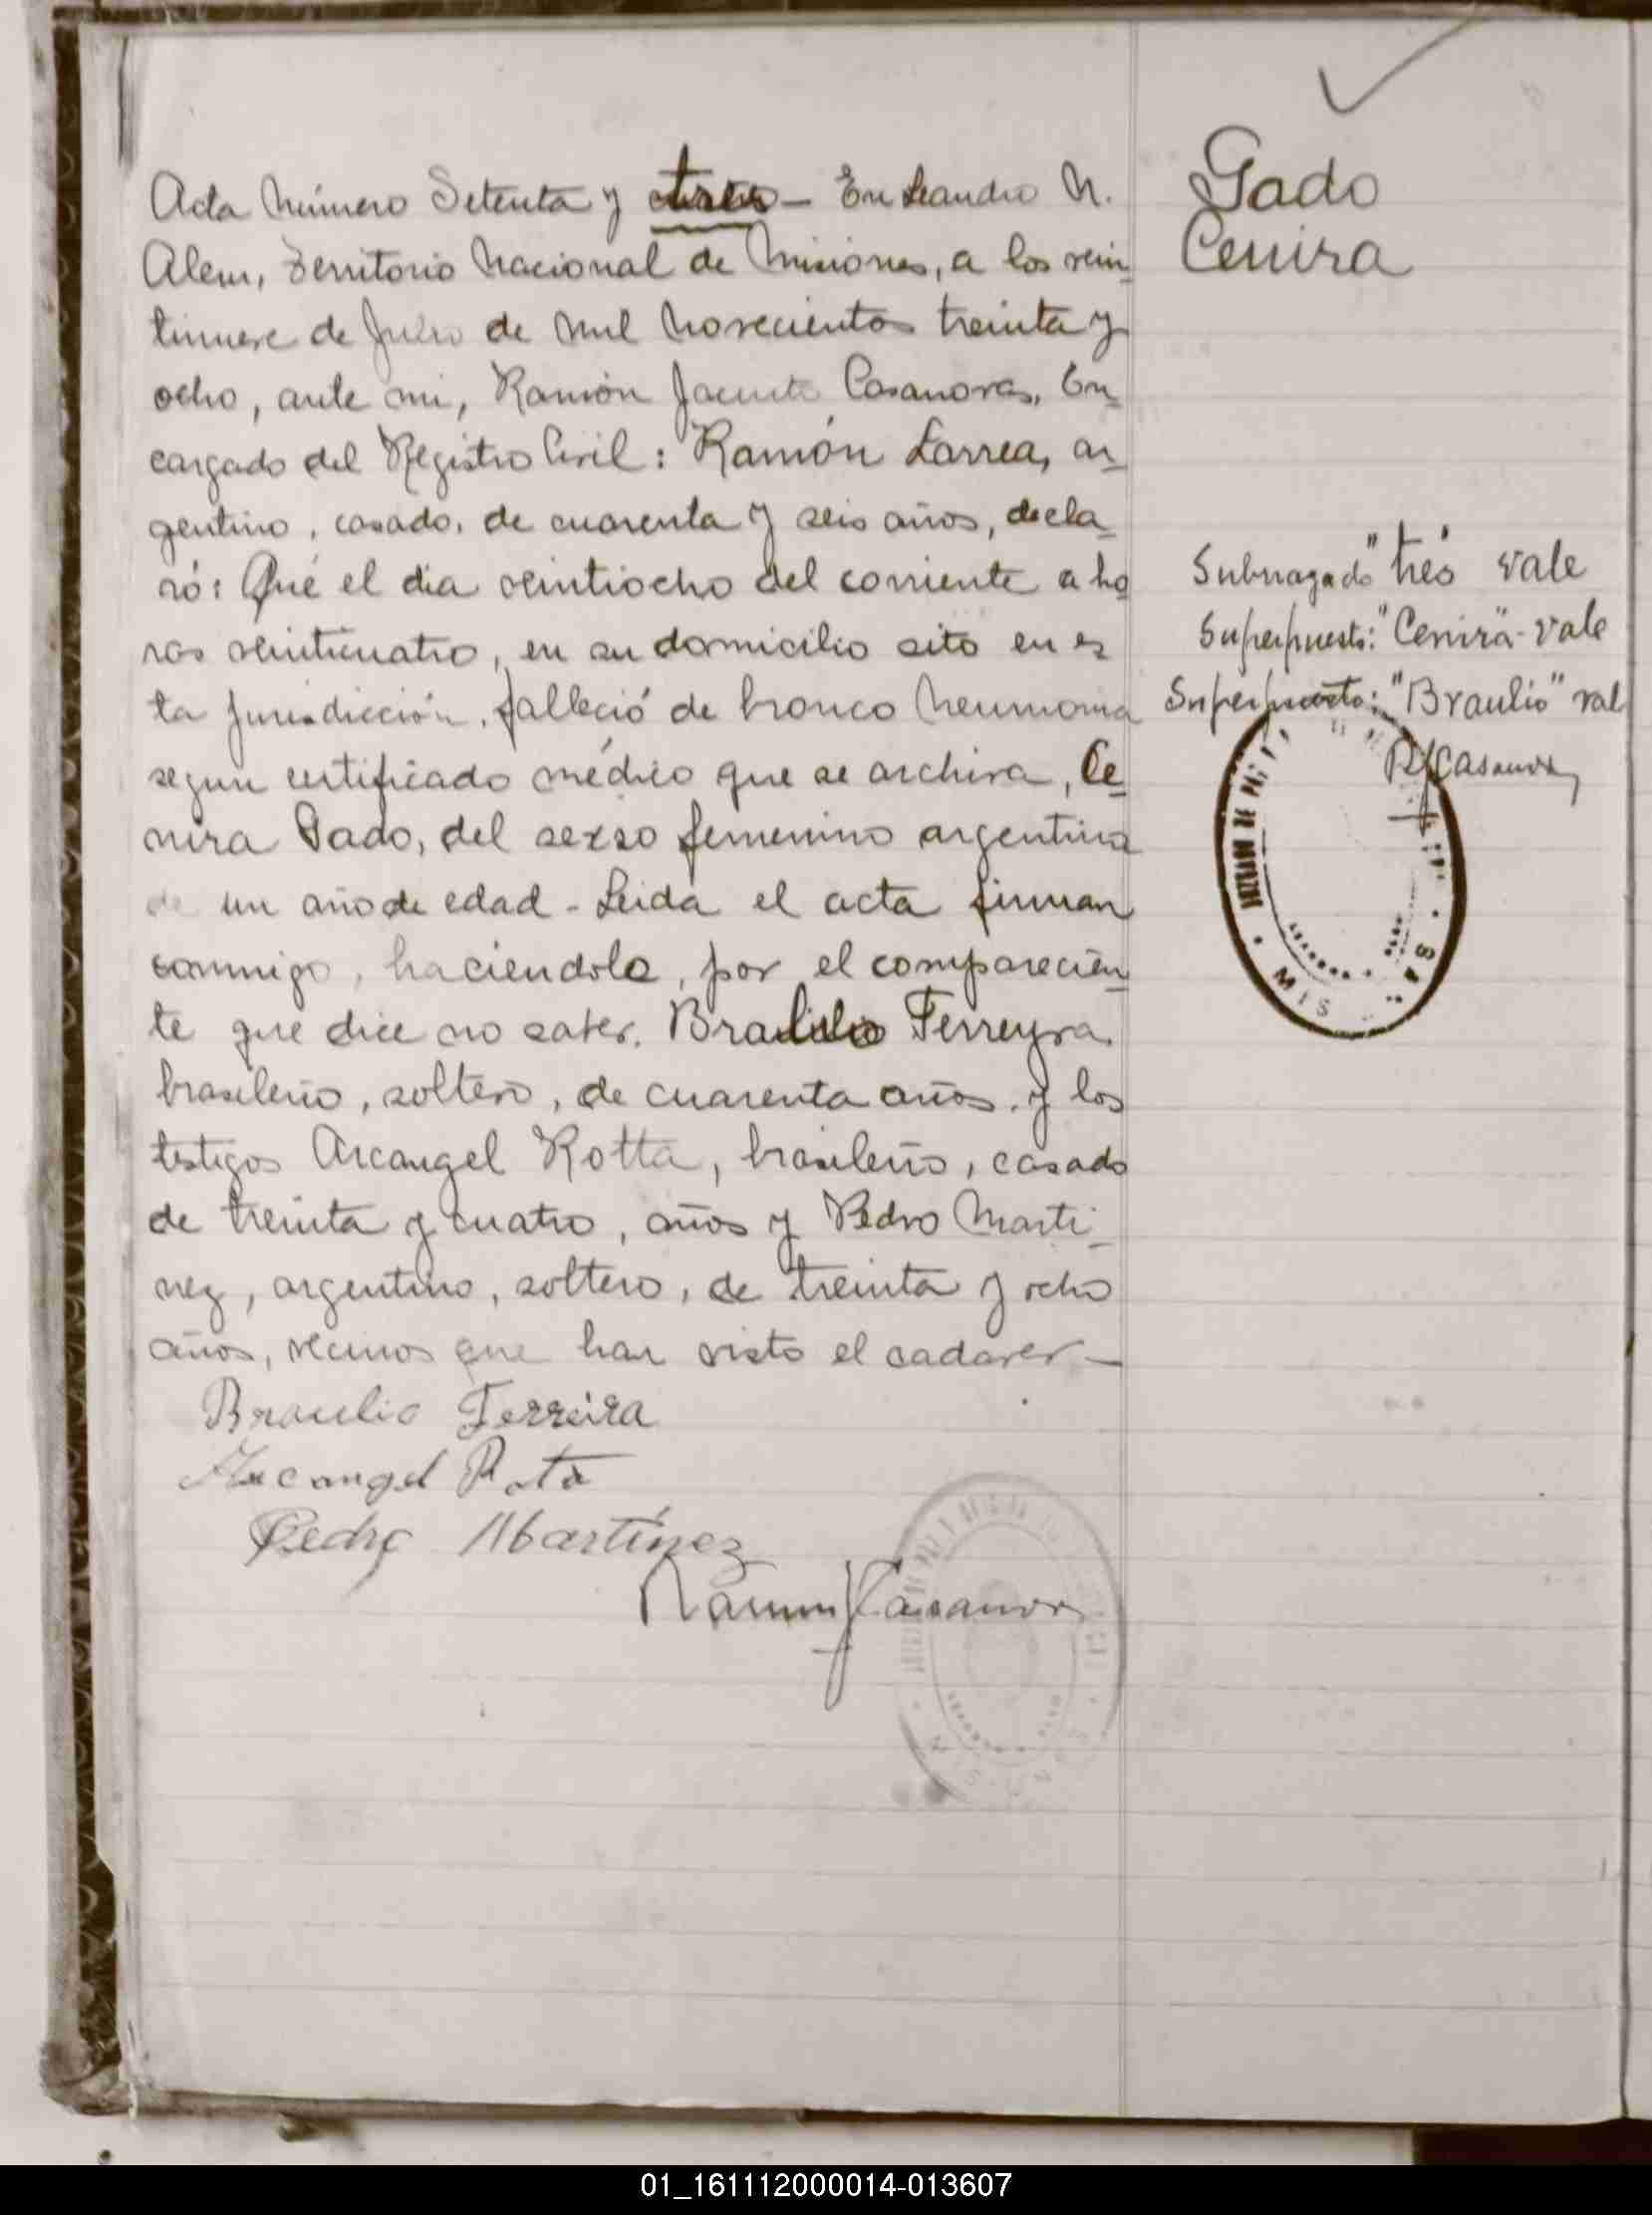 Gado
Cenira
Acta Número Setenta y tres - En Leandro N.
Alem, Territorio Nacional de Misiones, a los vein-
tinueve de Julio de mil novecientos treinta y
ocho, ante mi, Ramón Jacinto Casanova, En-
cargado del Registro Civil: Ramón Larrea, ar-
gentino, casado, de cuarenta y seis años, decla-
ró: Qué el dia veintiocho del corriente a ho
ras veinticuatro, en su domicilio sito en es
ta jurisdicción, falleció de bronco neumonia
segun certificado médico que se archiva, Ce-
nira Gado, del sexso femenino argentina
de un año de edad - Leida el acta firman
conmigo, haciendolo, por el comparecien-
te que dice no saber, Braulio Ferreyra
brasileño, soltero, de cuarenta años, y los
testigos Arcangel Rotta, brasileño, casado
de treinta y cuatro, años y Pedro Marti-
nez, argentino, soltero, de treinta y ocho
años, vecinos que han visto el cadaver -
Braulio Ferreira
Arcangel Rota
Pedro Martínez
Ramon J Casanova
Subrragado "trés vale
Superpuesto: "Cenira" - vale
Superpuesto: "Braulio" val
RJCasanova
MIS
01_161112000014-013607